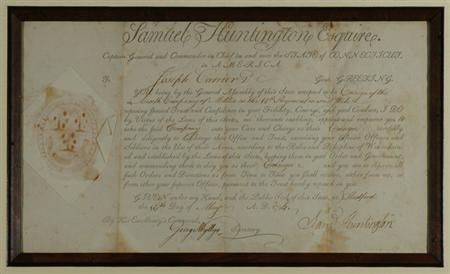 Samuel Huntington Esquire,
Captain General and Commander in Chief in and over the STATE of CONNECTICUT,
in AMERICA
To Joseph Carrier Gent. GREETING.
YOU being by the General Assembly of this State accepted to be Ensign of the
Company of Militia in the Regiment in said State
reposing special Trust and Confidence in your Fidelity, Courage, and good Conduct, I DO
by Virtue of the Laws of this State, me thereunto enabling, appoint and impower you to
take the said Company into your Care and Charge as their Ensign carefully
and diligently to discharge that Office and Trust, exercising your inferior Officers and
Soldiers in the Use of their Arms, according to the Rules and Discipline of War
and established by the Laws of this State, keeping them in good Order and Government,
and commanding them to obey you as their Ensign and you are to observe all
such Orders and Directions as from Time to Time you shall receive, either from me, or
from other your superior Officer, pursuant to the Trust hereby reposed in you.
GIVEN under my Hand, and the Public Seal of this State, at Hartford
the Day of May A. D.
By His Excellency's Command,
George Wyllys Secretary
Sam Huntington